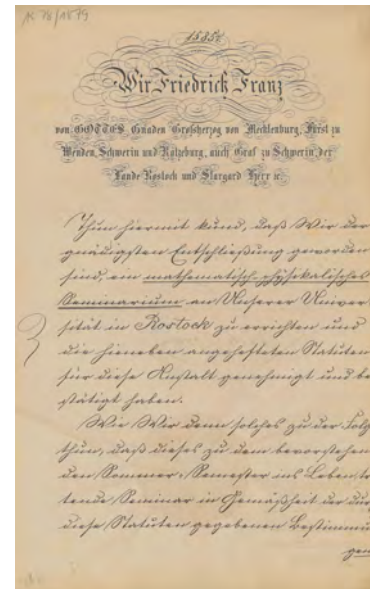 K 78/1879
1585
Wir Friedrich Franz
von GOTTES Gnaden Großherzog von Mecklenburg, Fürst zu
Wenden, Schwerin und Ratzeburg, auch Graf zu Schwerin, der
Lande Rostock und Stargard Herr ic.
Thun hiermit kund, daß Wir der
gnädigsten Entschließung geworden
sind, ein mathematisch-physikalisches
Seminarium an Unserer Univer-
sität in Rostock zu errichten und
die hieneben angehefteten Statuten
für diese Anstalt genehmigt und be
stätigt haben.
Wie Wir denn solches zu der Folge
thun, daß dieses zu dem bevorstehen
den Sommer-Semester ins Leben tre
tende Seminar in Gemäßheit der durch
diese Statuten gegebenen Bestimmun
gen